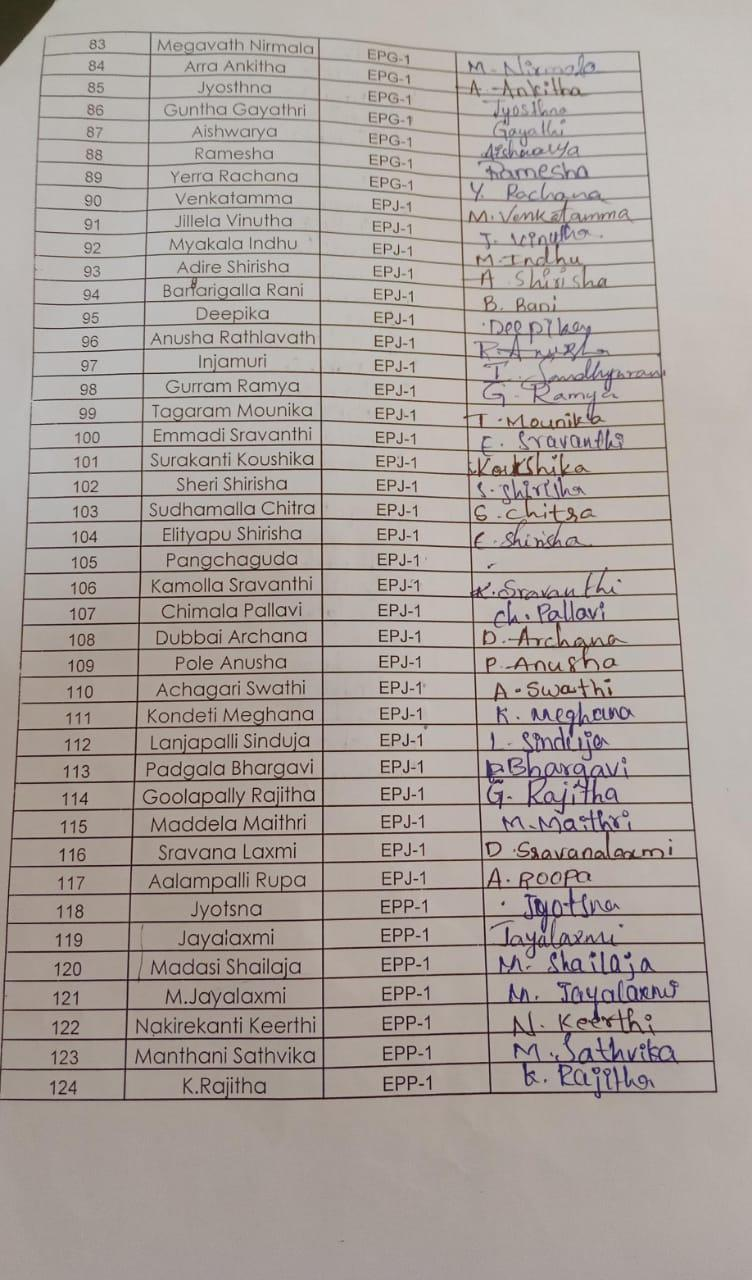 83 Megavath Nirmala EPG-1 M. Nirmala
84 Arra Ankitha EPG-1 A. Ankitha
85 Jyosthna EPG-1 Jyosthna
86 Guntha Gayathri EPG-1 Gayathi
87 Aishwarya EPG-1 Aishwarya
88 Ramesha EPG-1 Ramesha
89 Yerra Rachana EPG-1 Y. Rachana
90 Venkatamma EPJ-1 M. Venkatamma
91 Jillela Vinutha EPJ-1 J. Vinutha.
92 Myakala Indhu EPJ-1 M. Indhu
93 Adire Shirisha EPJ-1 A Shirisha
94 Rani EPJ-1 B. Rani
95 Deepika EPJ-1
96 Anusha Rathlavath EPJ-1 R. Anusha
97 Injamuri EPJ-1 I. Sandhyarani
98 Gurram Ramya EPJ-1 G. Ramya
99 Tagaram Mounika EPJ-1 T. Mounika
100 Emmadi Sravanthi EPJ-1 E. Sravanthi
101 Surakanti Koushika EPJ-1 Koushika
102 Sheri Shirisha EPJ-1 S. Shirisha
103 Sudhamalla Chitra EPJ-1 S. Chitra
104 Elityapu Shirisha EPJ-1 E. Shirisha
105 Pangchaguda EPJ-1
106 Kamolla Sravanthi EPJ-1 K. Sravanthi
107 Chimala Pallavi EPJ-1 Ch. Pallavi
108 Dubbai Archana EPJ-1 D. Archana
109 Pole Anusha EPJ-1 P. Anusha
110 Achagari Swathi EPJ-1 A. Swathi
111 Kondeti Meghana EPJ-1 K. Meghana
112 Lanjapalli Sinduja EPJ-1 L. Sinduja
113 Padgala Bhargavi EPJ-1 P Bhargavi
114 Goolapally Rajitha EPJ-1 G. Rajitha
115 Maddela Maithri EPJ-1 M. Maithri
116 Sravana Laxmi EPJ-1 D. Sravanalaxmi
117 Aalampalli Rupa EPJ-1 A. Roopa
118 Jyotsna EPP-1 Jyotsna
119 Jayalaxmi EPP-1 Jayalaxmi
120 Madasi Shailaja EPP-1 M. Shailaja
121 M.Jayalaxmi EPP-1 M. Jayalaxmi
122 Nakirekanti Keerthi EPP-1 N. Keerthi
123 Manthani Sathvika EPP-1 M. Sathvika
124 K.Rajitha EPP-1 K. Rajitha